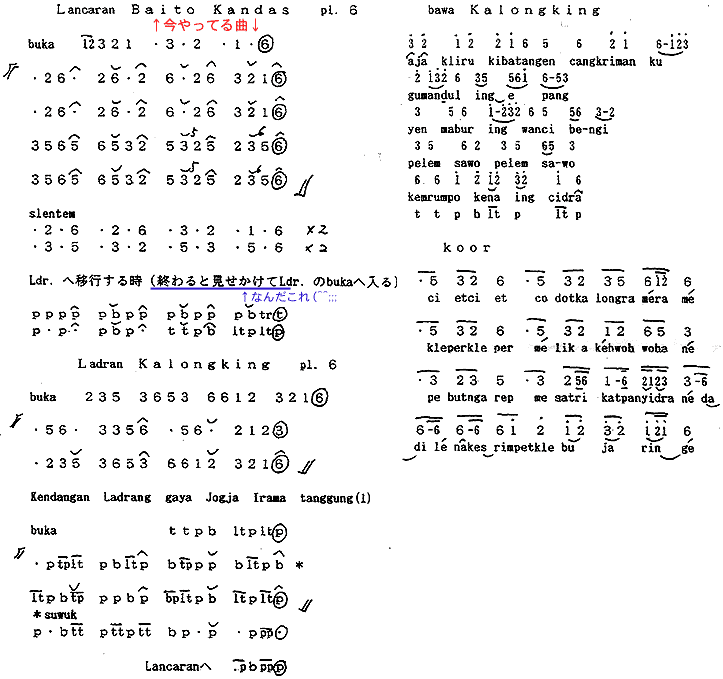 Lancaran Baito Kandas pl. 6
↑今やってる曲↓
buka 12321 ·3·2 ·1·6
·26· 26·2 6·26 3216
·26· 26·2 6·26 3216
3565 6532 5325 2356
3565 6532 5325 2356
slentem
·2·6 ·2·6 ·3·2 ·1·6 ×2
·3·5 ·3·2 ·5·3 ·5·6 ×2
Ldr. へ移行する時 (終わると見せかけてLdr. のbukaへ入る)
↑なんだこれ(⌒;;;
pppp pbpp pbpp pbtrt
p·p· pbp· ttpb ltpltp
Ladran Kalongking pl. 6
buka 235 3653 6612 3216
·56· 3356 ·56· 2123
·235 3653 6612 3216
Kendangan Ladrang gaya Jogja Irama tanggung(1)
buka ttpb ltpltp
·ptplt pbltp btppp bltpb *
ltpbtp ppbp bpltpb ltpltp
*suwuk
p·btt pttptt bp·p ·pp·
Lancaranへ .pbppp
bawa Kalongking
3 2 1 2 2 1 6 5 6 2 1 6-123
aja kliru kibatangen cangkriman ku
2 132 6 35 561 6-53
gumandul ing e pang
3 5 6 1-232 6 5 56 3-2
yen mabur ing wanci be-ngi
3 5 6 2 3 5 65 3
pelem sawo pelem sa-wo
6 6 1 2 12 32 1 6
kemrumpo kena ing cidra
t t p b lt p lt p
koor
·5 32 6 ·5 32 35 612 6
ci etci et co dotka longra méra mé
·5 32 6 ·5 32 12 65 3
kleperkle per mé lik a kéhwoh woha né
·3 23 5 ·3 256 1-6 2123 3-6
pe butnga rep me satri katpanyidra né da
6-6 6-6 61 2 12 32 121 6
di lé nâkes rimpetkle bu ja rin gé